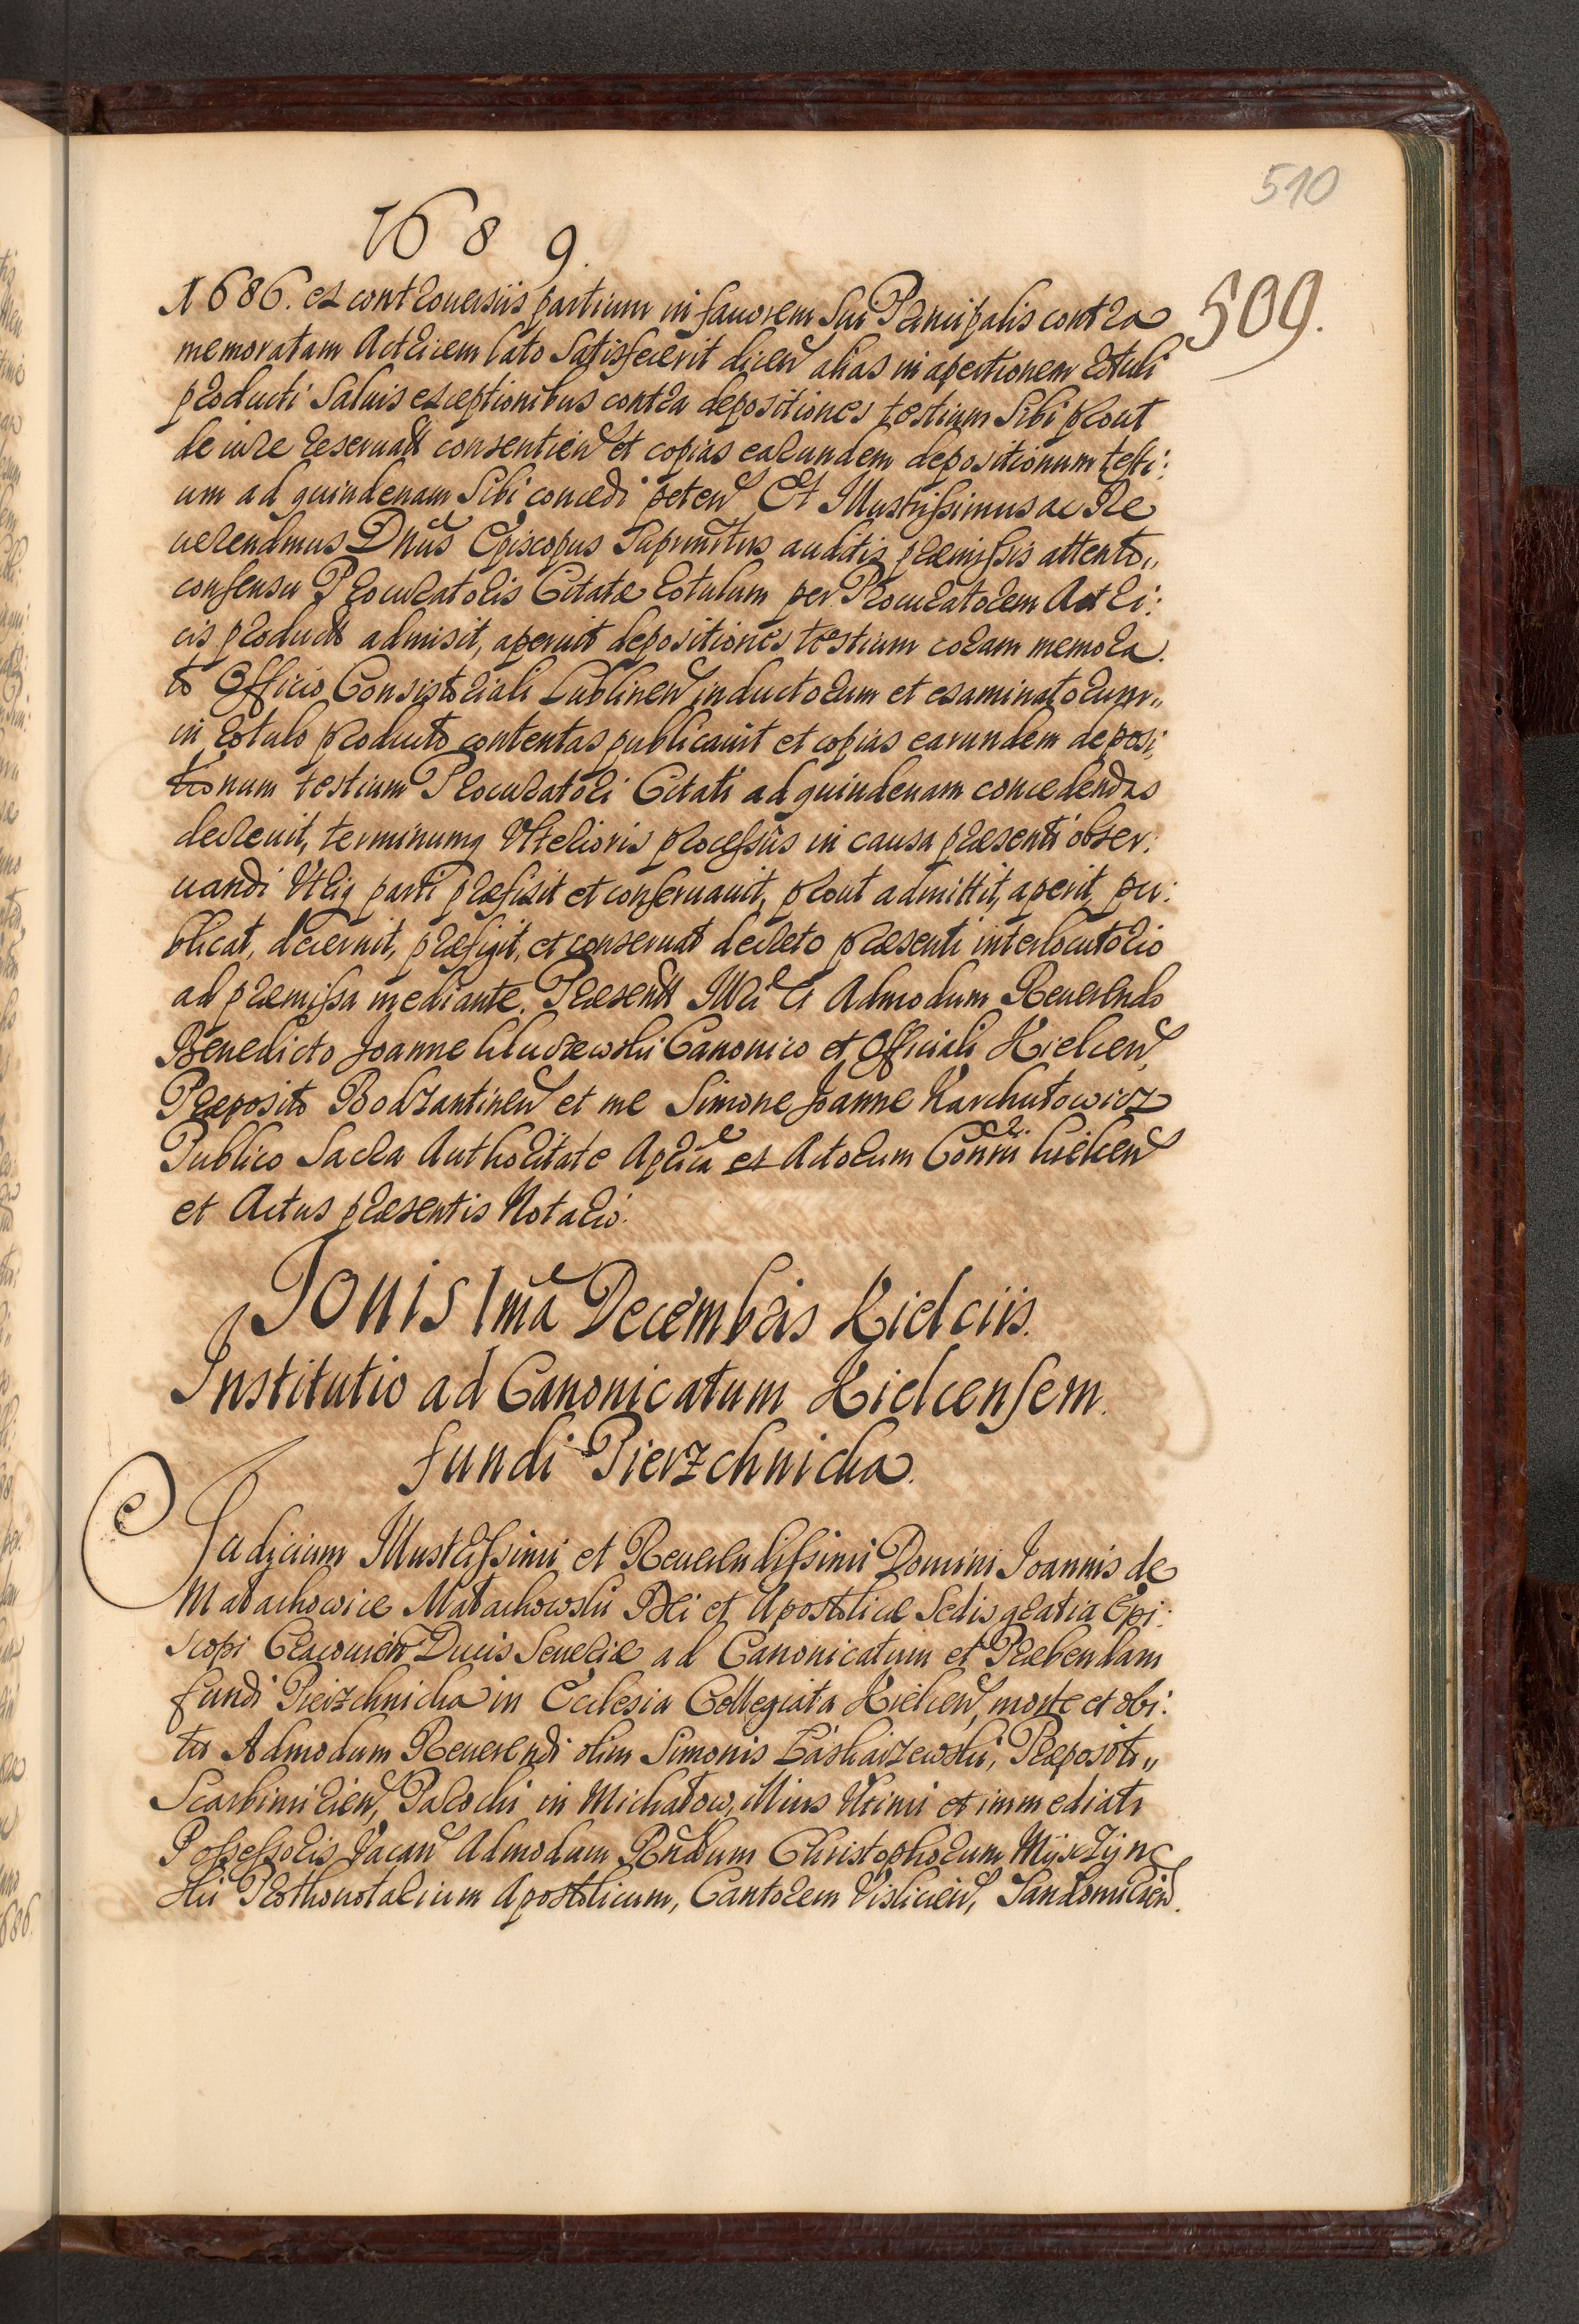 510
1689.
509.
1686. et controuersiis partium in fauorem Sui Principalis contra
memoratam Actricem lato Satisfecerit dicen alias in apertionem rotuli
producti Saluis exceptionibus contra depositiones testium Sibi prout
de iure reseruatt consentien et copias earundem depositionum testi:
um ad quindenam Sibi concedi peten Et Illustrissimus ac Re
uerendmus Dnus Episcopus auditis præmissis attento,,
consensu Procuratoris Citatæ rotulum per Procuratorem Actri:
cis productt admisit, aperuit depositiones testium coram memora.
to Officio Consistoriali Lublinen inductorum et examinatorum,,
in rotulo producto contentas publicauit et copias earundem deposi:
tionum testium Procuratori Citati ad quindenam concedendas
decreuit, terminumq Vlterioris processus in causa præsenti obser:
uandi Vtriq parti præfixit et conseruauit, prout admittit, aperit, pu:
blicat, decernit, præfigit, et conseruat decreto præsenti interlocutorio
ad præmissa mediante. Præsentt Illri et Admodum Reuerendo
Benedicto Joanne Canonico et Officiali Kielcen,
Præposito Bodzantinen et me Simone Joanne Karchutowicz
Publico Sacra Authoritate Aplica et Actorum Conrii Kielcen
et Actus præsentis Notario.
Jouis 1ma Decembris Kielciis.
Institutio ad Canonicatum Kielcensem
fundi Pierzchnicka.
Judicium Illustrissimi et Reuerendissimi Domini Joannis de
Małachowice Małachowski Dei et Apostolicæ Sedis gratia Epi:
scopi Cracouien Ducis Seueriæ ad Canonicatum et Præbendam
fundi Pierzchnicka in Ecclesia Collegiata Kielcen, morte et obi:
tu Admodum Reuerendi olim Simonis Præpositi,,
Scarbimirien, Parochi in Michałow, Illius Vltimi et immediati
Possessoris Vacan Admodum Rndum Christophorum Myszync
ski Prothonotarium Apostolicum, Cantorem Vislicien, Sandomirien.